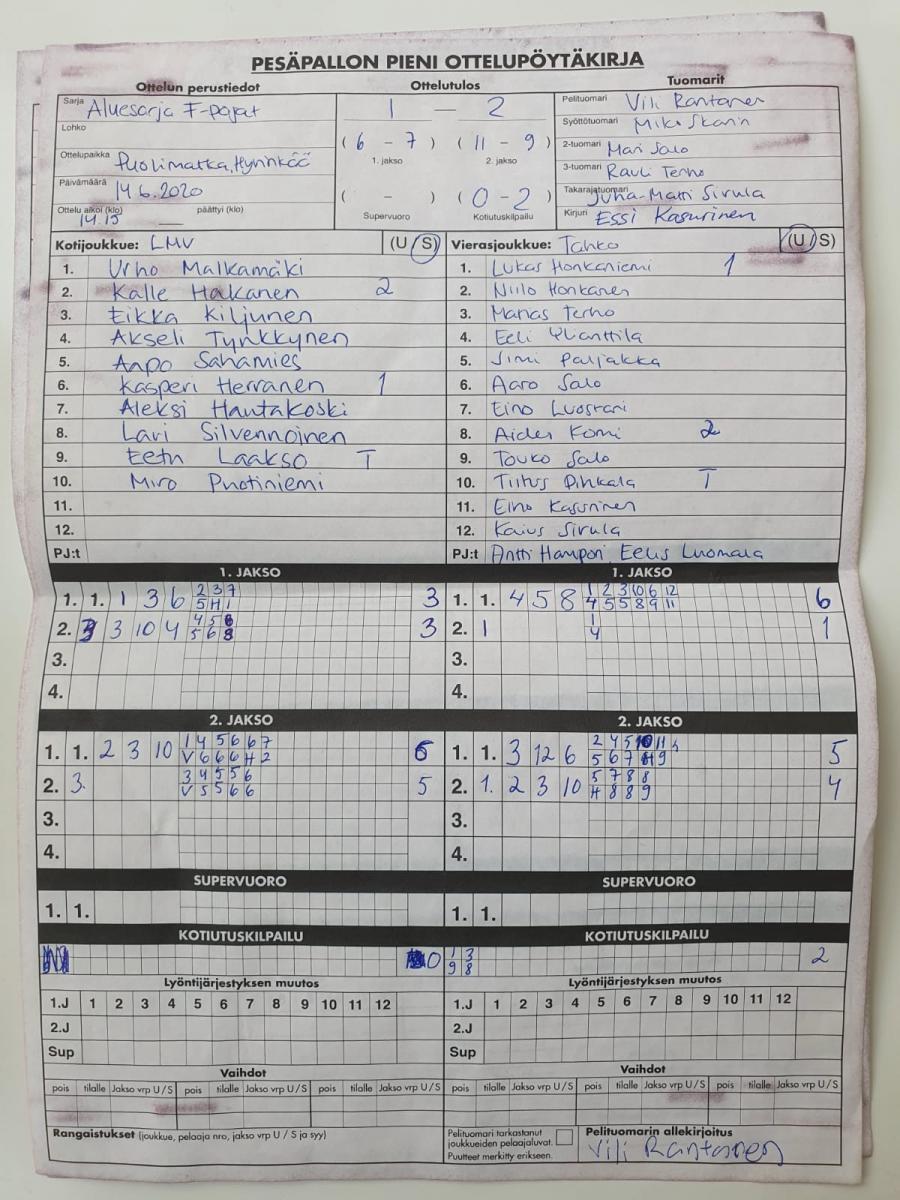 PESÄPALLON PIENI OTTELUPÖYTÄKIRJA
Ottelun perustiedot
Ottelutulos
Tuomarit
Sarja Aluesarja F-pojat
Lohko
Ottelupaikka Puolimatka, Hyvinkää
Päivämäärä 14.6.2020
Ottelu alkoi (klo) 14.15 päättyi (klo)
1 — 2
( 6 - 7 ) ( 11 - 9 )
1. jakso 2. jakso
( - ) ( 0 - 2 )
Supervuoro Kotiutuskilpailu
Pelituomari Vili Rantanen
Syöttötuomari Miko Skarin
2-tuomari Mari Salo
3-tuomari Rauli Terho
Takarajatuomari Juha-Matti Sirula
Kirjuri Essi Kasurinen
Kotijoukkue: LMV (U S)
1. Urho Malkamäki
2. Kalle Hakanen 2
3. Eikka Kiljunen
4. Akseli Tynkkynen
5. Aapo Sahamies
6. Kasperi Herranen 1
7. Aleksi Hautakoski
8. Lari Silvennoinen
9. Eetu Laakso T
10. Miro Puotiniemi
11.
12.
PJ:t
Vierasjoukkue: Tahko (U S)
1. Lukas Honkaniemi 1
2. Niilo Honkanen
3. Manas Terho
4. Eeli Ylianttila
5. Jimi Paljakka
6. Aaro Salo
7. Eino Luostari
8. Aiden Komi 2
9. Touko Salo
10. Tiitus Pihkala T
11. Eino Kasurinen
12. Kaius Sirula
PJ:t Antti Hampori Eelis Luomala
1. JAKSO
1. 1. 1 3 6 2 3 7 3
5 H 1
2. 3 10 4 4 5 6 3
5 6 8
3.
4.
1. JAKSO
1. 1. 4 5 8 1 2 3 10 6 12 6
4 5 5 8 9 11
2. 1 1 1
4
3.
4.
2. JAKSO
1. 1. 2 3 10 1 4 5 6 6 7 6
V 6 6 6 H 2
2. 3. 3 4 5 5 6 5
V 5 5 6 6
3.
4.
2. JAKSO
1. 1. 3 12 6 2 4 5 10 11 5
5 6 7 H 9
2. 1. 2 3 10 5 7 8 8 4
H 8 8 9
3.
4.
SUPERVUORO
1. 1.
SUPERVUORO
1. 1.
KOTIUTUSKILPAILU
0
KOTIUTUSKILPAILU
1 3 2
9 8
Lyöntijärjestyksen muutos
1.J 1 2 3 4 5 6 7 8 9 10 11 12
2.J
Sup
Lyöntijärjestyksen muutos
1.J 1 2 3 4 5 6 7 8 9 10 11 12
2.J
Sup
Vaihdot
pois tilalle Jakso vrp U / S pois tilalle Jakso vrp U / S pois tilalle Jakso vrp U / S
Vaihdot
pois tilalle Jakso vrp U / S pois tilalle Jakso vrp U / S pois tilalle Jakso vrp U / S
Rangaistukset (joukkue, pelaaja nro, jakso vrp U / S ja syy)
Pelituomari tarkastanut
joukkueiden pelaajaluvat.
Puutteet merkitty erikseen.
Pelituomarin allekirjoitus
Vili Rantanen